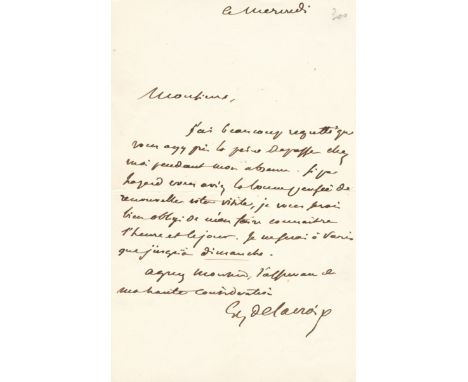 ce mercredi
300
Monsieur,
J'ai beaucoup regretté que
vous ayez pris la peine de passer chez
moi pendant mon absence. Si par
hazard vous aviez la bonne pensée de
renouveller votre visite, je vous serai
bien obligé de m'en faire connaitre
l'heure et le jour. Je ne serai à Paris
que jusqu'à dimanche.
Agréez Monsieur, l'assurance de
ma haute considération
Eug Delacroix